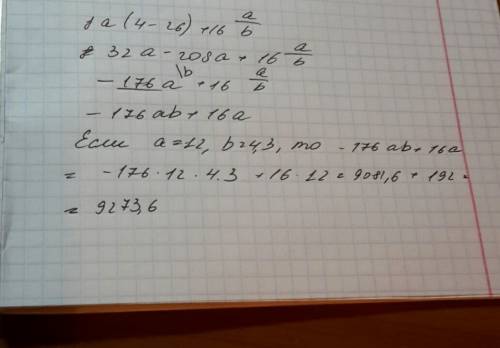 8a (4-26) +16 a/b
= 32a - 208a + 16 a/b
- 176a \b + 16 a/b
- 176ab + 16a
Если a=12, b=4,3, то - 176 ab + 16a
= -176 · 12 · 4.3 + 16 · 12 = 9081,6 + 192 =
= 9273,6